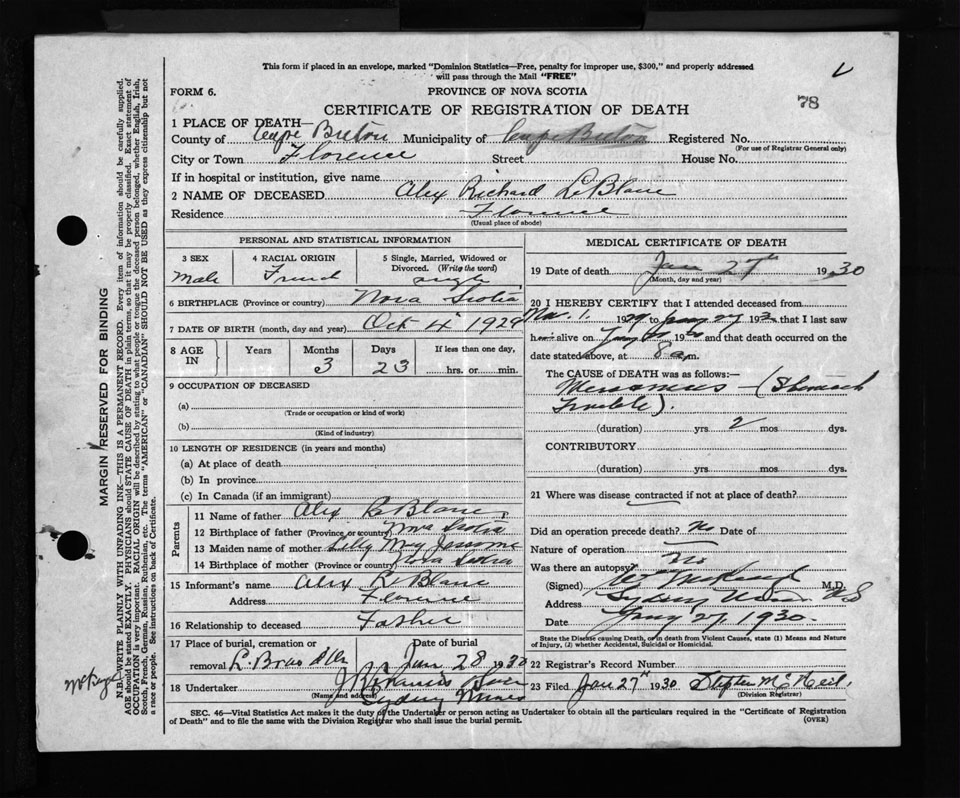 This form if placed in an envelope, marked "Dominion Statistics—Free, penalty for improper use, $300," and properly addressed
will pass through the Mail "FREE"
FORM 6.
PROVINCE OF NOVA SCOTIA
78
CERTIFICATE OF REGISTRATION OF DEATH
1 PLACE OF DEATH—
County of Cape Breton Municipality of Cape Breton Registered No.
(For use of Registrar General only)
City or Town Florence Street House No.
If in hospital or institution, give name
2 NAME OF DECEASED Alex Richard LeBlanc
Residence Florence
(Usual place of abode)
PERSONAL AND STATISTICAL INFORMATION
3 SEX 4 RACIAL ORIGIN 5 Single, Married, Widowed or
Divorced. (Write the word)
Male French single
6 BIRTHPLACE (Province or country) Nova Scotia
7 DATE OF BIRTH (month, day and year) Oct 4" 1929
8 AGE IN Years Months Days If less than one day,
3 23 hrs. or min.
9 OCCUPATION OF DECEASED
(a)
(Trade or occupation or kind of work)
(b)
(Kind of industry)
10 LENGTH OF RESIDENCE (in years and months)
(a) At place of death
(b) In province
(c) In Canada (if an immigrant)
Parents
11 Name of father Alex R Blanc
12 Birthplace of father (Province or country) Nova Scotia
13 Maiden name of mother Lilly May Jessome
14 Birthplace of mother (Province or country) Nova Scotia
15 Informant's name Alex R Blanc
Address Florence
16 Relationship to deceased Father
17 Place of burial, cremation or Date of burial
removal L. Bras d'Or Jan 28 1930
18 Undertaker
(Name and address)
Sydney Mines
MEDICAL CERTIFICATE OF DEATH
19 Date of death Jan 27th 1930
(Month, day and year)
20 I HEREBY CERTIFY that I attended deceased from
Nov. 1. 1929 to Jany 27 193 that I last saw
h alive on Jany 19 and that death occurred on the
date stated above, at 8 a.m.
The CAUSE OF DEATH was as follows:
(Stomach
Trouble).
(duration) yrs. 2 mos dys.
CONTRIBUTORY
(duration) yrs. mos. dys.
21 Where was disease contracted if not at place of death?
Did an operation precede death? No Date of
Nature of operation
Was there an autopsy? No
(Signed) M.D.
Address Sydney Mines N.S
Date Jany 27, 1930.
State the Disease causing Death, or in death from Violent Causes, state (1) Means and Nature
of Injury, (2) whether Accidental, Suicidal or Homicidal.
22 Registrar's Record Number
23 Filed Jan 27th 1930 Stephen McNeil.
(Division Registrar)
SEC. 46—Vital Statistics Act makes it the duty of the Undertaker or person acting as Undertaker to obtain all the particulars required in the "Certificate of Registration
of Death" and to file the same with the Division Registrar who shall issue the burial permit. (OVER)
MARGIN RESERVED FOR BINDING
N.B.—WRITE PLAINLY WITH UNFADING INK—THIS IS A PERMANENT RECORD. Every item of information should be carefully supplied.
AGE should be stated EXACTLY. PHYSICIANS should STATE CAUSE OF DEATH in plain terms, so that it may be properly classified. Exact statement of
OCCUPATION is very important. RACIAL ORIGIN will be described by stating to what people or tongue the deceased person belonged, whether English, Irish,
Scotch, French, German, Russian, Ruthenian, etc. The terms "AMERICAN" or "CANADIAN" SHOULD NOT BE USED as they express citizenship but not
a race or people. See instructions on back of Certificate.